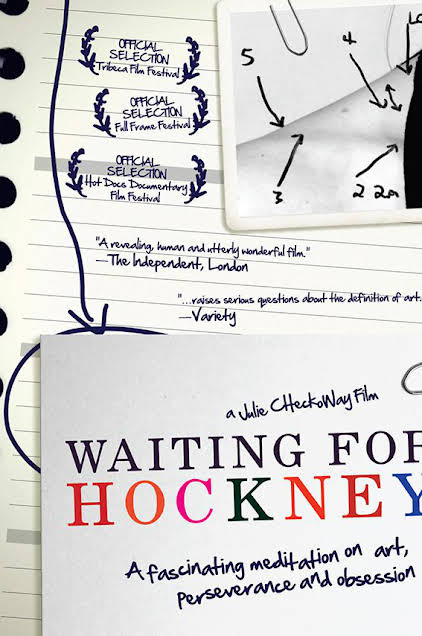 OFFICIAL
SELECTION
Tribeca Film Festival
OFFICIAL
SELECTION
Full Frame Festival
OFFICIAL
SELECTION
Hot Docs Documentary
Film Festival
5
4
3
2
"A revealing, human and utterly wonderful film."
—The Independent, London
"...raises serious questions about the definition of art.
—Variety
a Julie CHeckoWay Film
WAITING FOR
HOCKNEY
A fascinating meditation on art,
perseverance and obsession